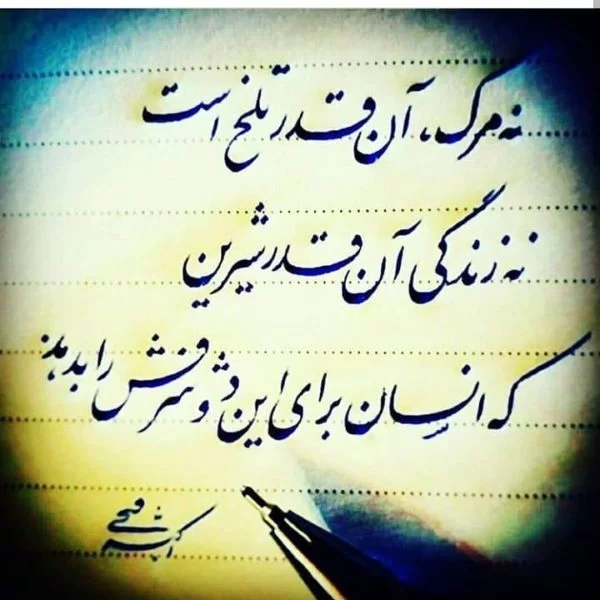 نه مرگ، آن قدر تلخ است
نه زندگی آن قدر شیرین
که انسان برای این دو شرفش را بدهد